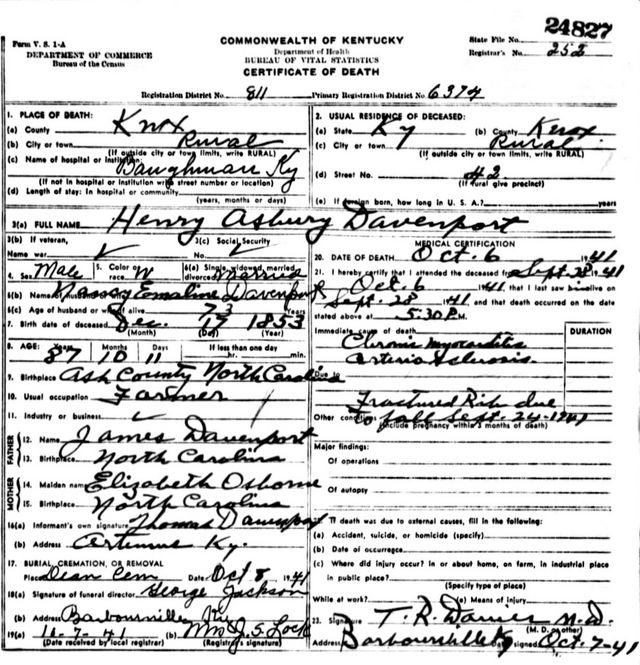 24827
Form V. S. 1-A
COMMONWEALTH OF KENTUCKY
State File No.
DEPARTMENT OF COMMERCE
Department of Health
Registrar's No. 252
Bureau of the Census
BUREAU OF VITAL STATISTICS
CERTIFICATE OF DEATH
Registration District No. 811 Primary Registration District No. 6374
1. PLACE OF DEATH:
(a) County Knox
(b) City or town Rural
(If outside city or town limits, write RURAL)
(c) Name of hospital or institution: Baughman Ky
(If not in hospital or institution write street number or location)
(d) Length of stay: In hospital or community
(years, months or days)
2. USUAL RESIDENCE OF DECEASED:
(a) State Ky (b) County Knox
(c) City or town Rural
(If outside city or town limits, write RURAL)
(d) Street No. #2
(If rural give precinct)
(e) If foreign born, how long in U. S. A.? years
3(a) FULL NAME Henry Asbury Davenport
3(b) If veteran, 3(c) Social Security
Name war No.
4. Sex Male 5. Color or race W 6(a) Single, widowed, married, divorced Married
6(b) Name of husband or wife Nancy Emaline Davenport
6(c) Age of husband or wife if alive 73
7. Birth date of deceased Dec. 19 1853
(Month) (Day) (Year)
8. AGE: Years Months Days If less than one day
87 10 11 hr. min.
9. Birthplace Ash County North Carolina
10. Usual occupation Farmer
11. Industry or business
FATHER
12. Name James Davenport
13. Birthplace North Carolina
MOTHER
14. Maiden name Elizabeth Osborne
15. Birthplace North Carolina
16(a) Informant's own signature Thomas Davenport
(b) Address Artemus Ky.
17. BURIAL, CREMATION, OR REMOVAL
Place Dean Cem Date Oct 8 1941
18(a) Signature of funeral director George Jackson
(b) Address Barbourville, Ky
19(a) 11-7-41 (b) Mrs. J. S. Lock
(Date received by local registrar) (Registrar's signature)
MEDICAL CERTIFICATION
20. DATE OF DEATH Oct. 6 1941
21. I hereby certify that I attended the deceased from Sept. 28 1941
Oct. 6 1941 that I last saw him alive on
Sept. 28 1941 and that death occurred on the date
stated above at 5:30 P.M.
Immediate cause of death DURATION
Chronic myocarditis
Arterio Sclerosis
Due to
Fractured Rib due
to fall Sept. 24-1941
Other conditions
(Include pregnancy within 3 months of death)
Major findings:
Of operations
Of autopsy
If death was due to external causes, fill in the following:
(a) Accident, suicide, or homicide (specify)
(b) Date of occurrence
(c) Where did injury occur? In or about home, on farm, in industrial place
in public place?
(Specify type of place)
While at work? (e) Means of injury
23. Signature T. R. Davies M.D.
(M. D. or other)
Address Barbourville Ky Date signed Oct. 7-41